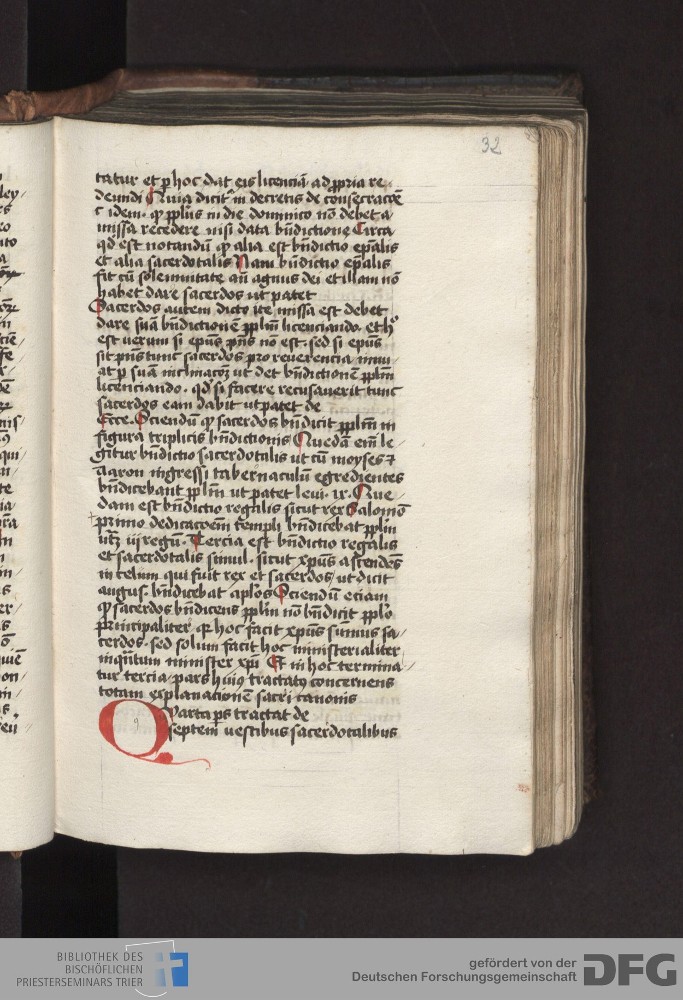 32
tatur et p hoc dat eis licenciā ad ꝓpria re
deundi Quia dicitʳ in decretis de consecracōe
c idem · ꝙ pplūs in die dominico nō debet a
missa recedere nisi data bn̄dictione Circa
qd est notandū ꝙ alia est bn̄dictio ep̄alis
et alia sacerdotalis Nam bn̄dictio ep̄alis
fit cū solennitate an̄ agnus dei et illam nō
habet dare sacerdos ut patet
Sacerdos autem dicto ite missa est debet
dare suā bn̄dictionē pplīm licenciando · et hᵒ
est verum si ep̄us pn̄s nō est · sed si ep̄us
sit pn̄s tunc sacerdos pro reuerencia
at p suā ut det bn̄dictionē pplīm
licenciando · qd si facere recusauerit tunc
sacerdos eam dabit ut patet de
Ecce · Sciendū ꝙ sacerdos bn̄dicit pplīm in
figura triplicis bn̄dictionis Quedā em̄ le
gitur bn̄dictio sacerdotalis ut cū moyses ⁊
aaron ingressi tabernaculū egredientes
bn̄dicebant pplīm ut patet leui · ix · Que
dam est bn̄dictio regalis sicut rex Salomō
primo dedicacōem templi bn̄dicebat pplīm
iij regū · Tercia est bn̄dictio regalis
et sacerdotalis simul · sicut xp̄us ascendēs
in celum qui fuit rex et sacerdos / ut dicit
augus · bn̄dicebat ap̄los Sciendū eciam
ꝙ sacerdos bn̄dicens pplīm nō bn̄dicit pplō
principaliter · qꝛ hoc facit xp̄us sūmus sa
cerdos · sed solum facit hoc ministerialiter
inq̄ntum minister xp̄i Et in hoc termina
tur tercia pars huiꝰ tractatꝰ concernens
totam explanacionē sacri canonis
Quarta ps tractat de
septem vestibus sacerdotalibus
BIBLIOTHEK DES
BISCHÖFLICHEN
PRIESTERSEMINARS TRIER
gefördert von der
Deutschen Forschungsgemeinschaft
DFG